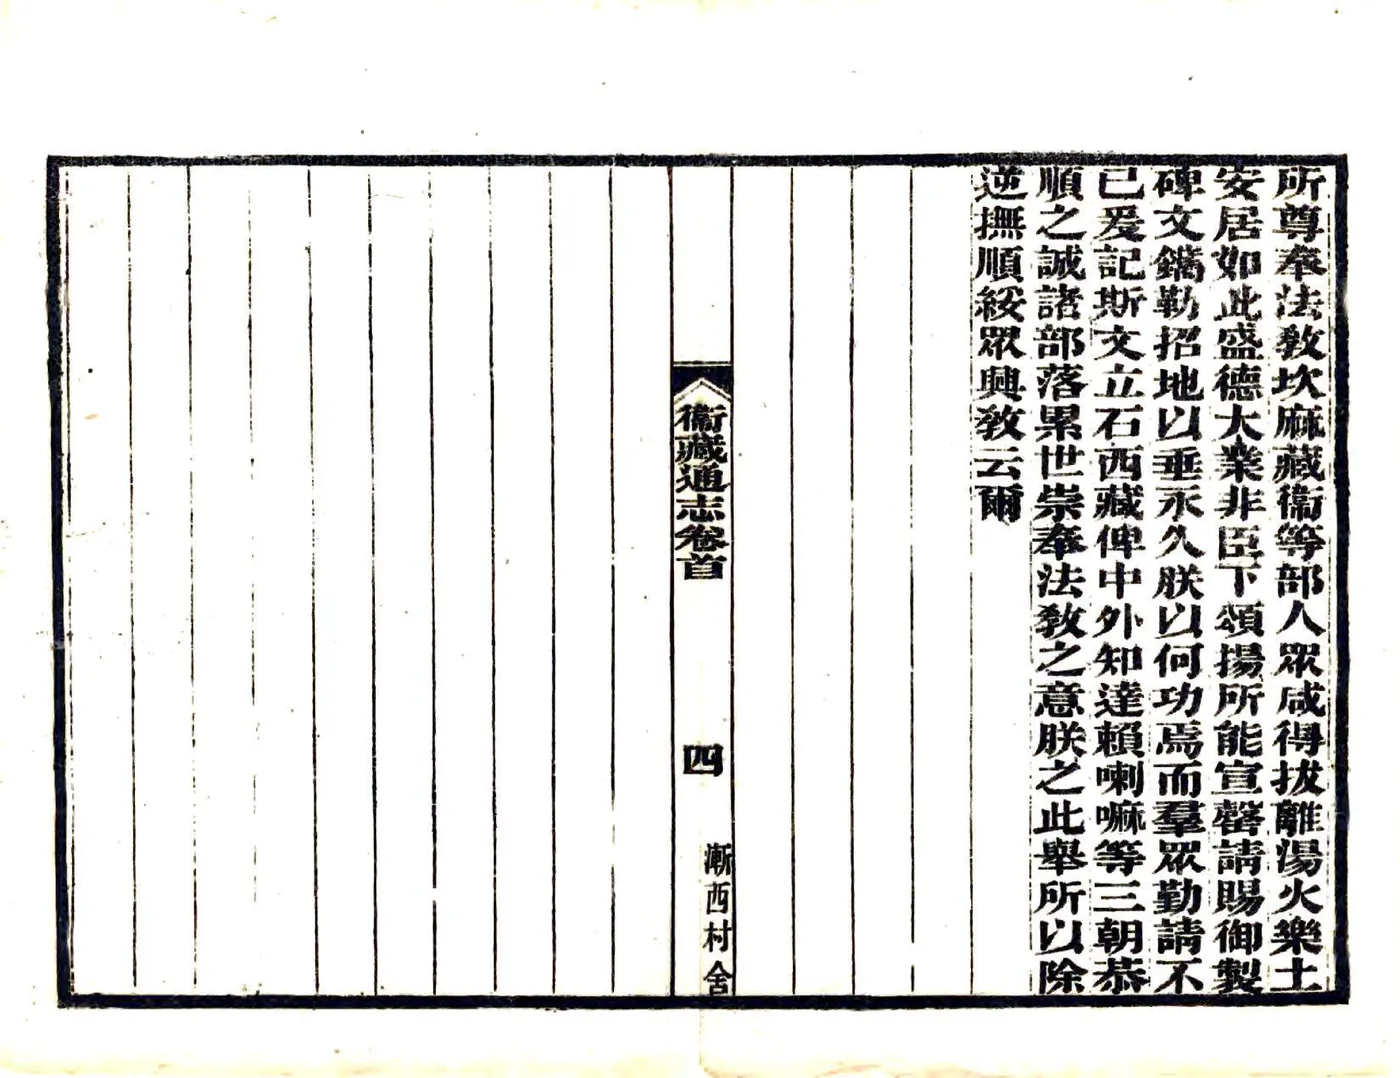 所尊奉法敎坎麻藏衞等部人眾咸得拔離湯火樂土
安居如此盛德大業非臣下頌揚所能宣罄請賜御製
碑文鐫勒招地以垂永久朕以何功焉而羣眾勤請不
已爰記斯文立石西藏俾中外知達賴喇嘛等三朝恭
順之誠諸部落累世崇奉法敎之意朕之此舉所以除
逆撫順綏眾興敎云爾
衞藏通志卷首
四
漸西村舍